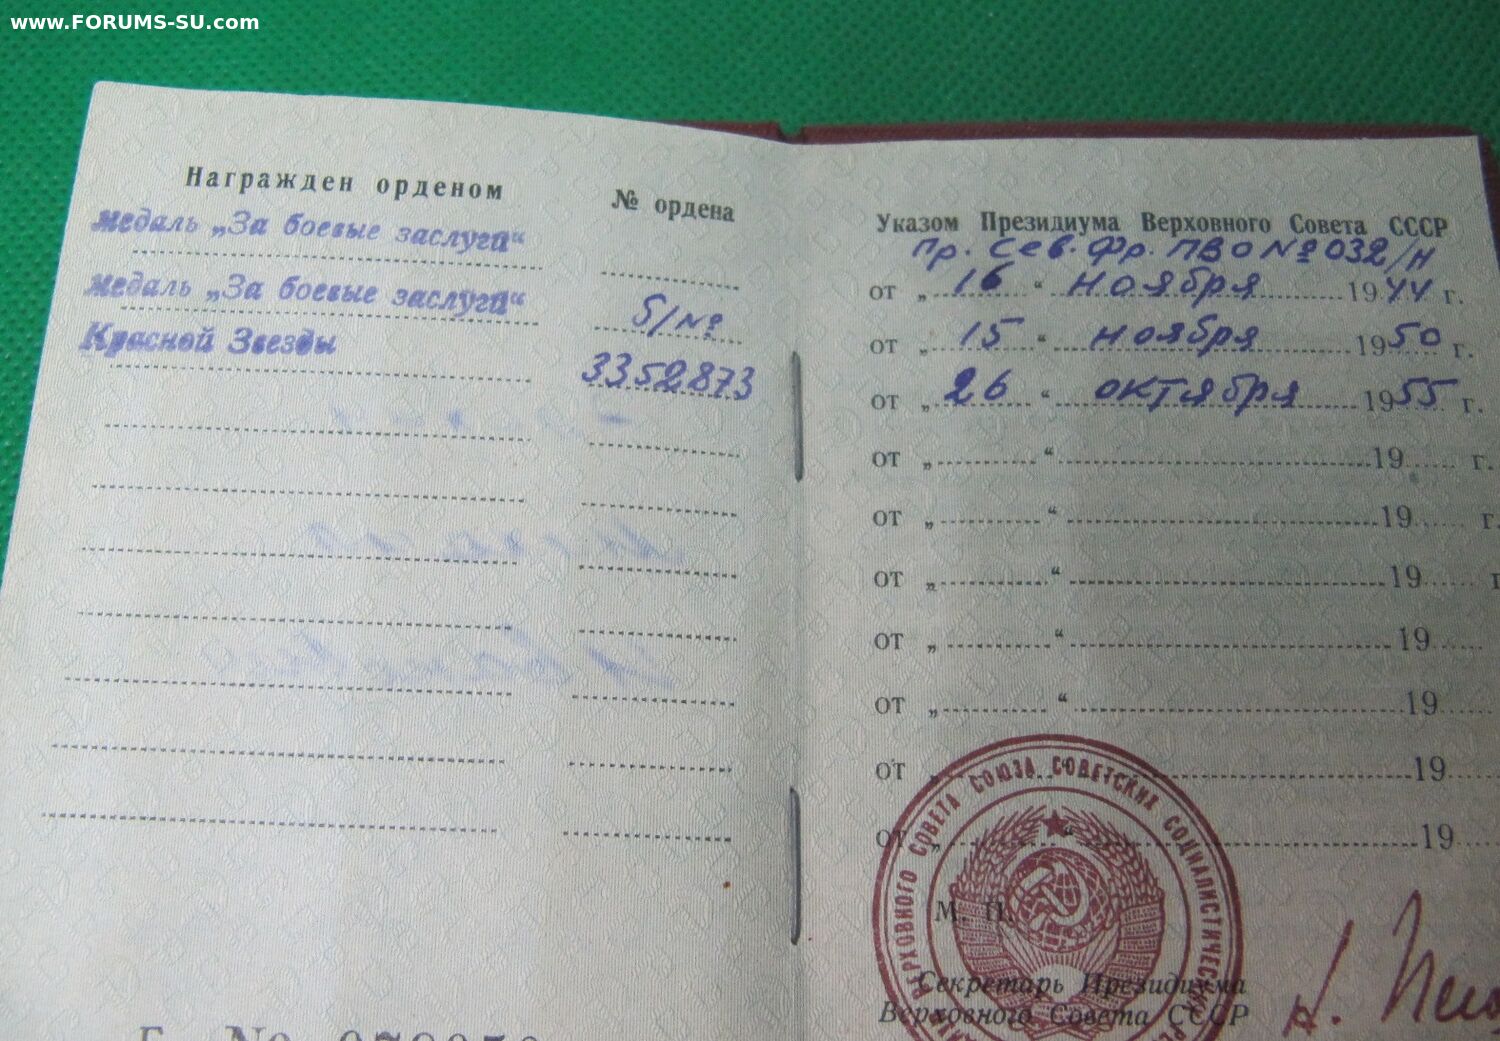 www.FORUMS-SU.com
Награжден орденом
№ ордена
медаль „За боевые заслуги“
медаль „За боевые заслуги“ б/№
Красной Звезды 3352873
Указом Президиума Верховного Совета СССР
Пр. Сев. Фр. ПВО № 032/н
от „16“ ноября 1944 г.
от „15“ ноября 1950 г.
от „26“ октября 1955 г.
от „ “ 19 г.
от „ “ 19 г.
от „ “ 19 г
от „ “ 19
от „ “ 19
от „ “ 19
от „ “ 19
ВЕРХОВНОГО СОВЕТА СОЮЗА СОВЕТСКИХ СОЦИАЛИСТИЧЕСКИХ
М. П.
Секретарь Президиума
Верховного Совета СССР